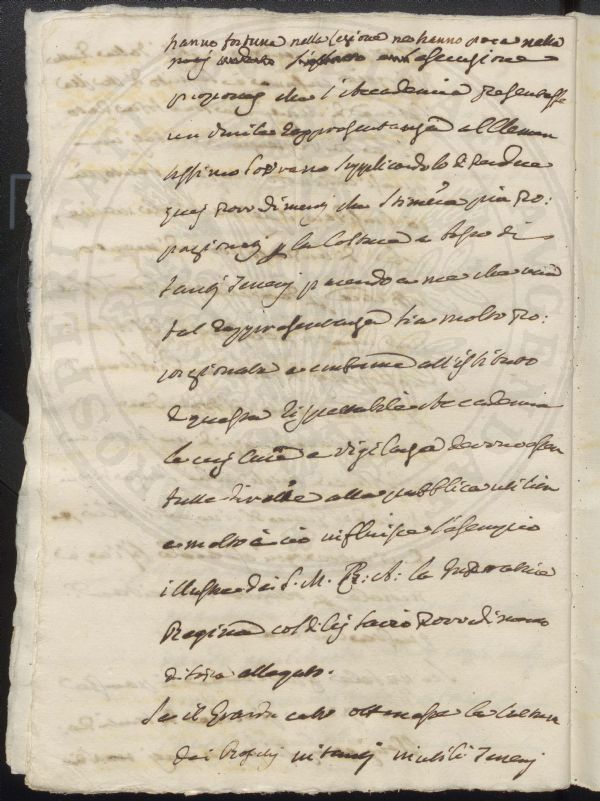 hanno fortuna nella Lezione ne hanno poca nella
esecuzione
proporrei che l'Accademia presentasse
un' umile Rappresentanza al Clemen
tissimo Sovrano supplicandolo di prendere
quei Provvedimenti che stimerà più Pro:
porzionati per la Coltura a segno di
tanti Terreni parendo a me che una
tal Rappresentanza sia molto Pro:
porzionata e conforme all'istituto
di questa Rispettabile Accademia
le cui Cure e vigilanza devono esser
tutte dirette alla pubblica utilità
e molto a ciò influisce l'esempio
illustre di S. M. R: A: la Imperatrice
Regina col di Lei Savio Provvedimento
di sopra allegato.
Se il Grande catto ottenesse la Coltura
dei tanti inutili Terreni